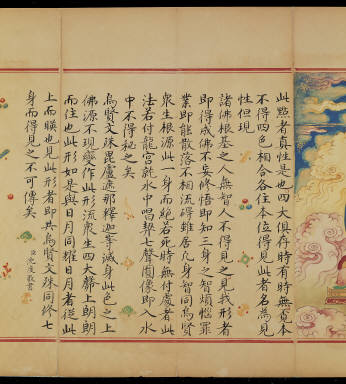 此點者真性是也四大俱存時有時無覓本
不得四色相合各住本位得見此者名為見
性但現
諸佛根基之人無智人不得見之見我形者
即得成佛不妄修悟即知三身之智煩惱罪
業即能散落不相流碍雖居凡身智同為賢
衆生根源此一身而絕若死時無付處者此
法若付龍宮乾水中唱契七聲圓像即入水
中不得秘之矣
為賢文殊毘盧遮那釋迦牟滅身此色之上
佛源不現變作此形流衆生四大髒上朗朗
而住也此形如是與日月同耀日月者從此
上而暎也見此形者即共為賢文殊同終七
身而得見之不可傳矣